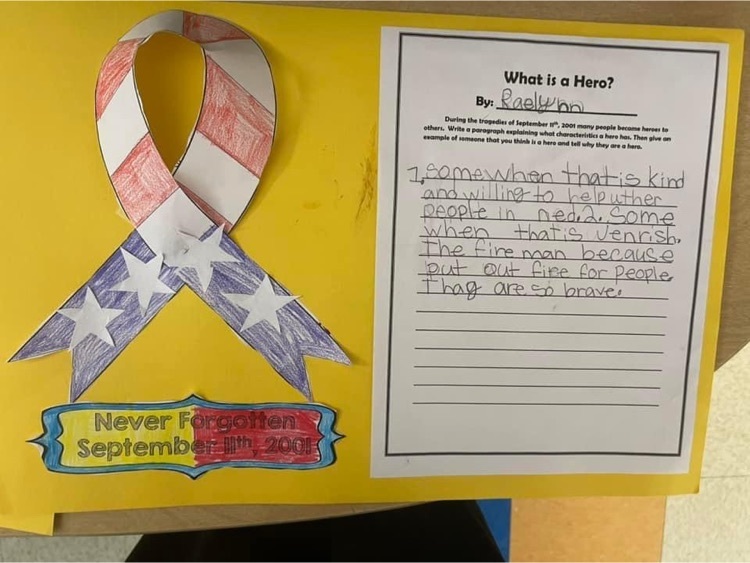 What is a Hero?
By: Raelynn
During the tragedies of September 11th, 2001 many people became heroes to
others. Write a paragraph explaining what characteristics a hero has. Then give an
example of someone that you think is a hero and tell why they are a hero.
1, somewhen that is kind
and willing to help uther
people in ned. 2. Some
when that is venrish.
The fire man because
put out fire for people
thay are so brave.
Never Forgotten
September 11th, 2001